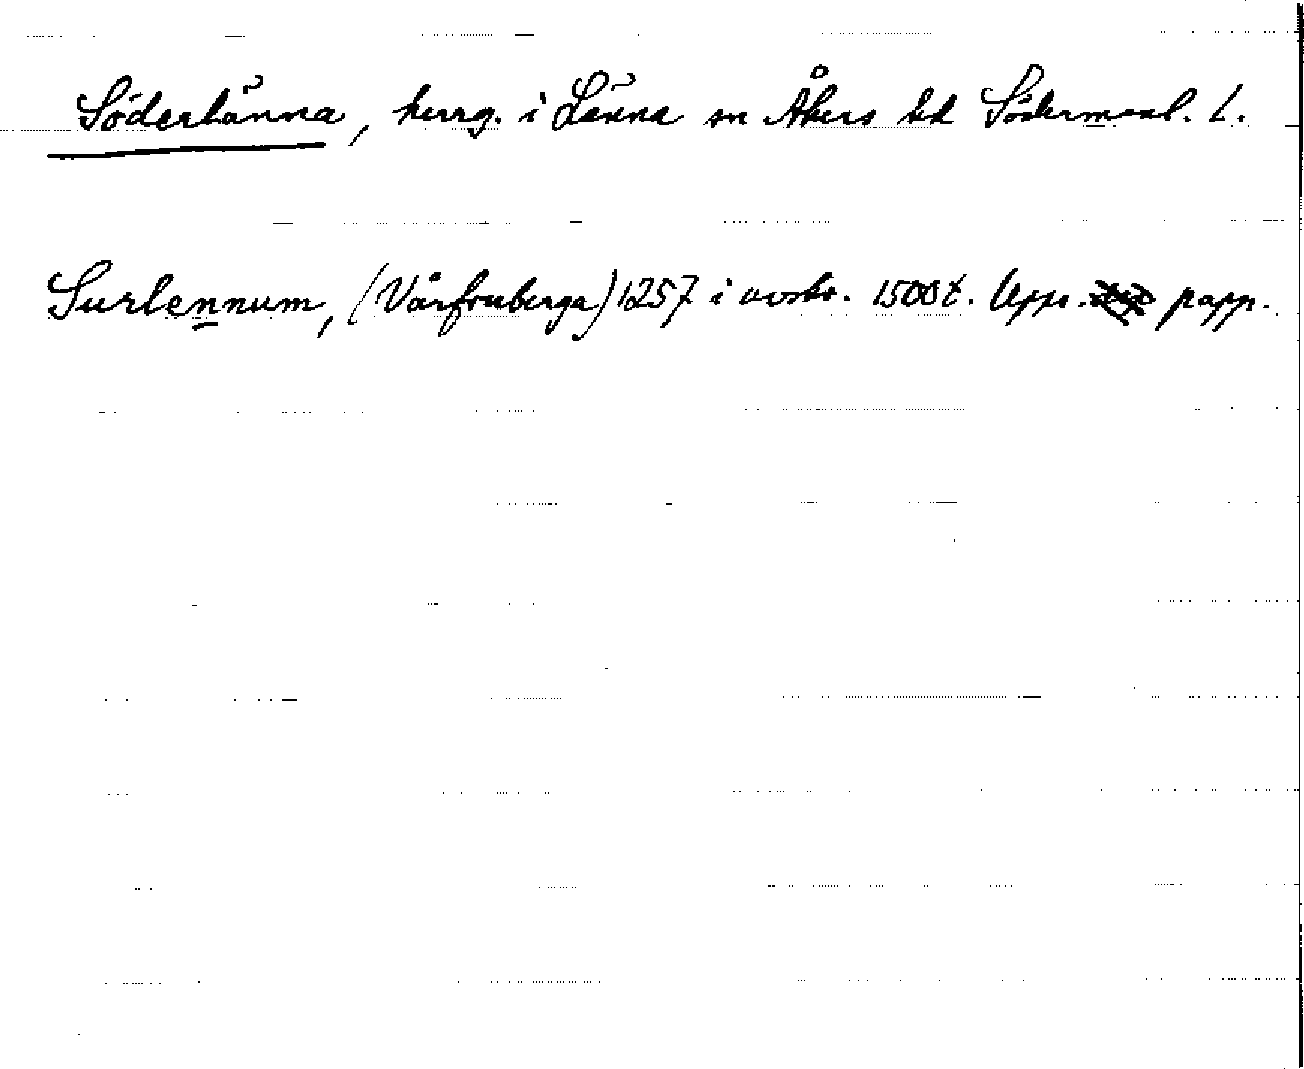 Söderlänna, herrg. i Länna sn Åkers hd Södermanl. l.
Surlennum, (Vårfruberga) 1257 i avskr. 1500t. Upps. papp.